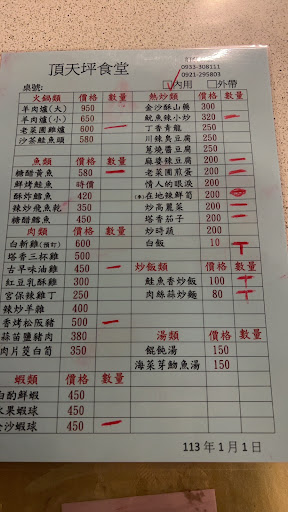 頂天坪食堂
0933-308111
0921-295803
桌號:
內用 外帶
火鍋類 價格 數量
羊肉爐(大) 950
羊肉爐(小) 650
老菜圃雞爐 600
沙茶鮭魚頭 580
魚類 價格 數量
糖醋黃魚 580
鮮烤鮭魚 時價
酥炸鱈魚 420
辣炒飛魚乾 350
糖醋鱈魚 450
肉類 價格 數量
白斬雞(預訂) 600
塔香三杯雞 500
古早味油雞 450
紅豆乳酥雞 300
宮保辣雞丁 250
辣炒羊雜 300
香烤松阪豬 500
蒜苗鹽豬肉 380
肉片茭白筍 350
蝦類 價格 數量
白酌鮮蝦 450
水果蝦球 450
金沙蝦球 450
熱炒類 價格 數量
金沙酥山藥 300
魷魚辣小炒 320
丁香青龍 250
川辣臭豆腐 200
蔥燒醬豆腐 200
麻婆辣豆腐 200
老菜圃煎蛋 200
情人的眼淚 200
在地辣鮮筍 200
炒高麗菜 200
塔香茄子 200
炒時蔬 200
白飯 10
炒飯類 價格 數量
鮭魚香炒飯 100
肉絲蒜炒麵 80
湯類 價格 數量
餛飩湯 150
海菜芽魩魚湯 150
113 年 1 月 1 日